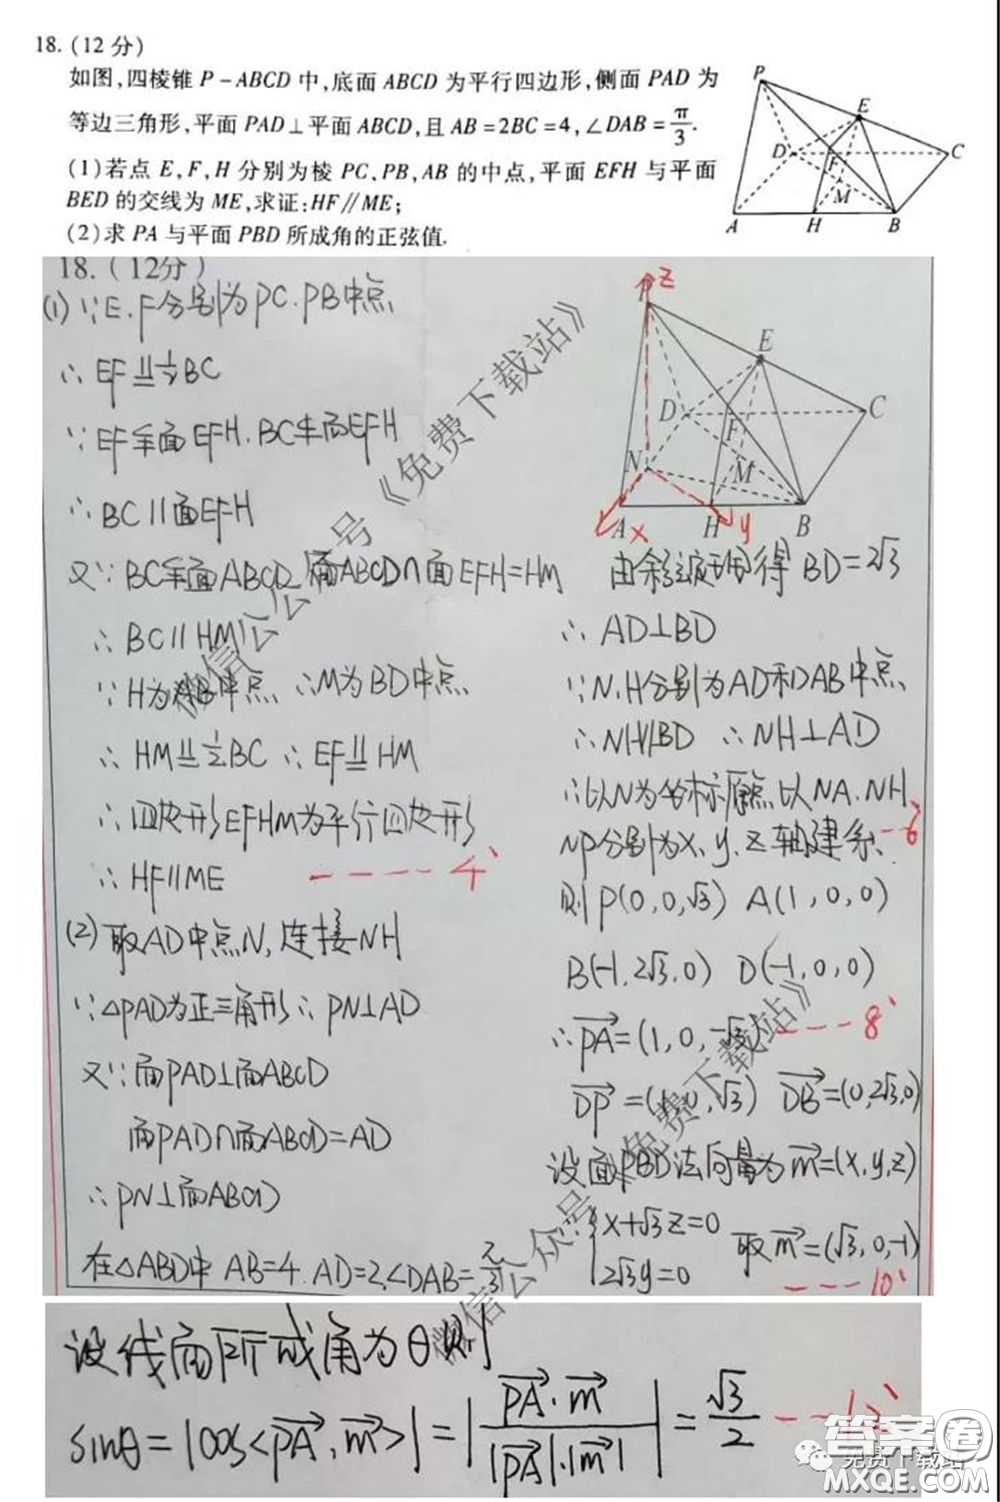 18. (12 分)
如图,四棱锥 P-ABCD 中,底面 ABCD 为平行四边形,侧面 PAD 为
等边三角形,平面 PAD⊥平面 ABCD,且 AB=2BC=4,∠DAB=π/3.
(1)若点 E,F,H 分别为棱 PC,PB,AB 的中点,平面 EFH 与平面
BED 的交线为 ME,求证:HF∥ME;
(2)求 PA 与平面 PBD 所成角的正弦值.
P
E
D
C
F
M
A
H
B
18.(12分)
(1) ∵E.F分别为PC.PB中点
∴ EF∥=½BC
∵ EF⊂面EFH. BC⊄面EFH
∴ BC∥面EFH
又∵ BC⊂面ABCD 面ABCD∩面EFH=HM
∴ BC∥HM
∵ H为AB中点 ∴M为BD中点
∴ HM∥=½BC ∴EF∥=HM
∴ 四边形EFHM为平行四边形
∴ HF∥ME ----4'
(2) 取AD中点N,连接NH
∵△PAD为正三角形∴PN⊥AD
又∵面PAD⊥面ABCD
面PAD∩面ABCD=AD
∴PN⊥面ABCD
在△ABD中 AB=4.AD=2,∠DAB=π/3
P
z
E
D
C
F
N
M
A
x
H
y
B
由余弦定理得 BD=2√3
∴ AD⊥BD
∵ N,H分别为AD和AB中点
∴NH∥BD ∴NH⊥AD
∴以N为坐标原点以NA.NH
NP分别为x.y.z轴建系. --6'
则P(0,0,√3) A(1,0,0)
B(-1,2√3,0) D(-1,0,0)
∴PA=(1,0,-√3) ---8'
DP=(1,0,√3) DB=(0,2√3,0)
设面PBD法向量为m=(x,y,z)
{x+√3z=0
2√3y=0 取m=(√3,0,-1)
----10'
设线面所成角为θ则
sinθ=|cos<PA,m>|=|PA·m/|PA|·|m||=√3/2 ---12'
微信公众号《免费下载站》
微信公众号《免费下载站》
答案圈
免费下载站
MXQE.COM